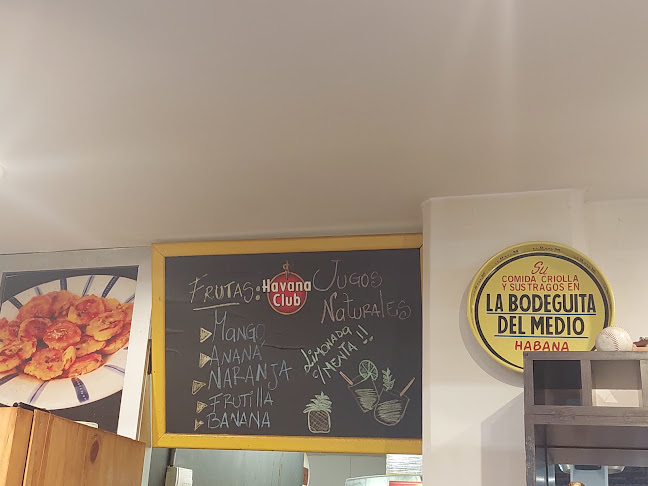 FRUTAS:
Havana
Club
JUGOS
NATURALES
MANGO
ANANÁ
NARANJA
FRUTILLA
BANANA
LIMONADA
MENTA!!
Su
COMIDA CRIOLLA
Y SUS TRAGOS EN
LA BODEGUITA
DEL MEDIO
HABANA